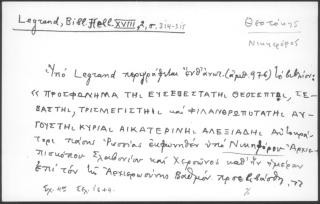 Legrand, Bibl. Hell. XVIII, 2, σ. 314-315
Θεοτόκης
Νικηφόρος
Ὑπὸ Legrand περιγράφεται ἐνθάνωτ. (ἀριθ. 976) τὸ βιβλίον:
« ΠΡΟΣΦΩΝΗΜΑ ΤΗ ΕΥΣΕΒΕΣΤΑΤΗ ΘΕΟΣΕΠΤΩ, ΣΕ-
ΒΑΣΤΗ, ΤΡΙΣΜΕΓΙΣΤΗ καὶ ΦΙΛΑΝΘΡΩΠΟΤΑΤΗ ΑΥ-
ΓΟΥΣΤΗ ΚΥΡΙΑ ΑΙΚΑΤΕΡΙΝΗ ΑΛΕΞΙΑΔΗ Αὐτοκρα-
τόρι πάσης Ρωσσίας ἐκφωνηθὲν ὑπὸ Νικηφόρου Ἀρχιε-
πισκόπου Σλαβονίου καὶ Χερσῶνος καθ' ἣν ἡμέραν
ἐπὶ τὸν τῆς Ἀρχιερωσύνης Βαθμὸν προεβιβάσθη, »
Σχ. 4ον